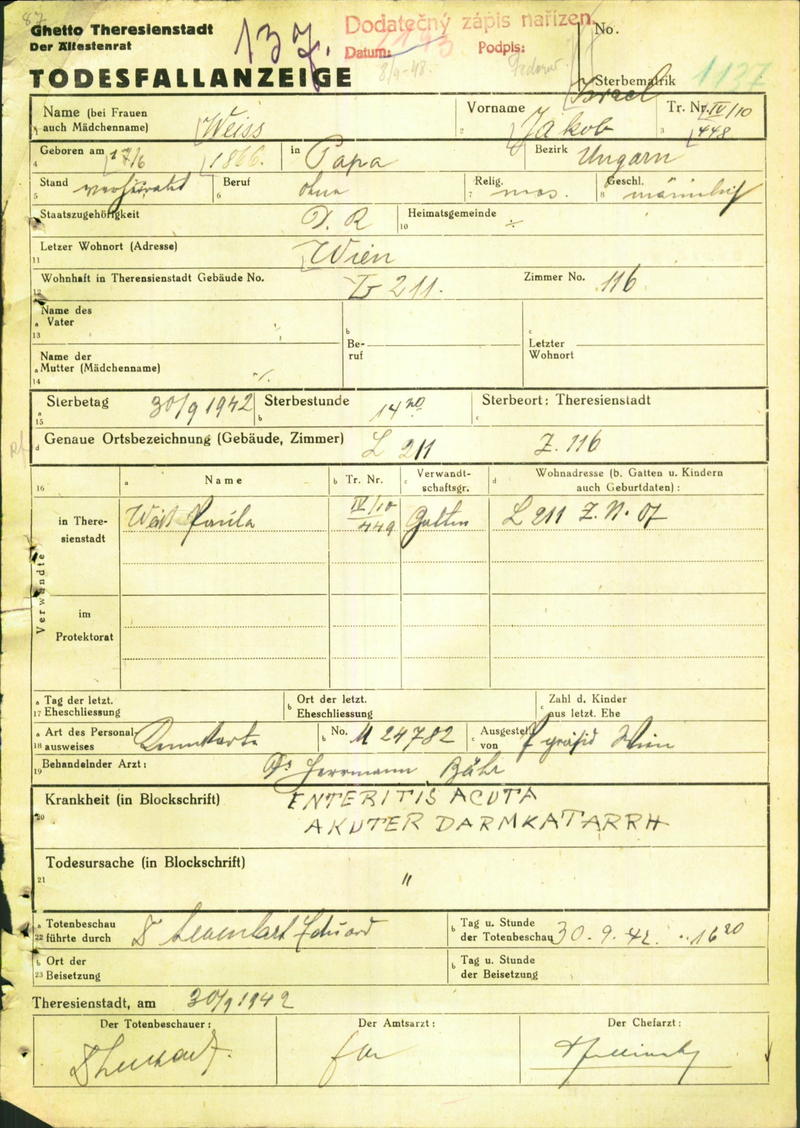 87
Ghetto Theresienstadt
Der Ältestenrat
137.
Dodatečný zápis nařízen.
Datum: Podpis:
8/9-48.
No.
TODESFALLANZEIGE
Sterbematrik 1137
Israel
Name (bei Frauen auch Mädchenname) Weiss
Vorname Jakob
Tr. Nr. IV/10 448
Geboren am 17/6 1866. in Papa Bezirk Ungarn
Stand verheiratet Beruf ohne Relig. mos. Geschl. männlich
Staatszugehörigkeit D. R Heimatsgemeinde ÷
Letzer Wohnort (Adresse) Wien
Wohnhaft in Theresienstadt Gebäude No. L 211. Zimmer No. 116
Name des Vater
Be-ruf
Letzter Wohnort
Name der Mutter (Mädchenname)
Sterbetag 30/9 1942 Sterbestunde 14 20 Sterbeort: Theresienstadt
Genaue Ortsbezeichnung (Gebäude, Zimmer) L 211 Z. 116
Name Tr. Nr. Verwandt-schaftsgr. Wohnadresse (b. Gatten u. Kindern auch Geburtdaten) :
Verwandte
in There-sienstadt Weiss Paula IV/10 449 Gattin L 211 Z. N. 07
im Protektorat
Tag der letzt. Eheschliessung
Ort der letzt. Eheschliessung
Zahl d. Kinder aus letzt. Ehe
Art des Personal-ausweises Kennkarte No. M 24782 Ausgestellt von Wien
Behandelnder Arzt: Dr Herrmann Bähr
Krankheit (in Blockschrift) ENTERITIS ACUTA
AKUTER DARMKATARRH
Todesursache (in Blockschrift) "
Totenbeschau führte durch Dr Eduard
Tag u. Stunde der Totenbeschau 30. 9. 42. 16 20
Ort der Beisetzung
Tag u. Stunde der Beisetzung
Theresienstadt, am 30/9 1942
Der Totenbeschauer: Der Amtsarzt: Der Chefarzt: